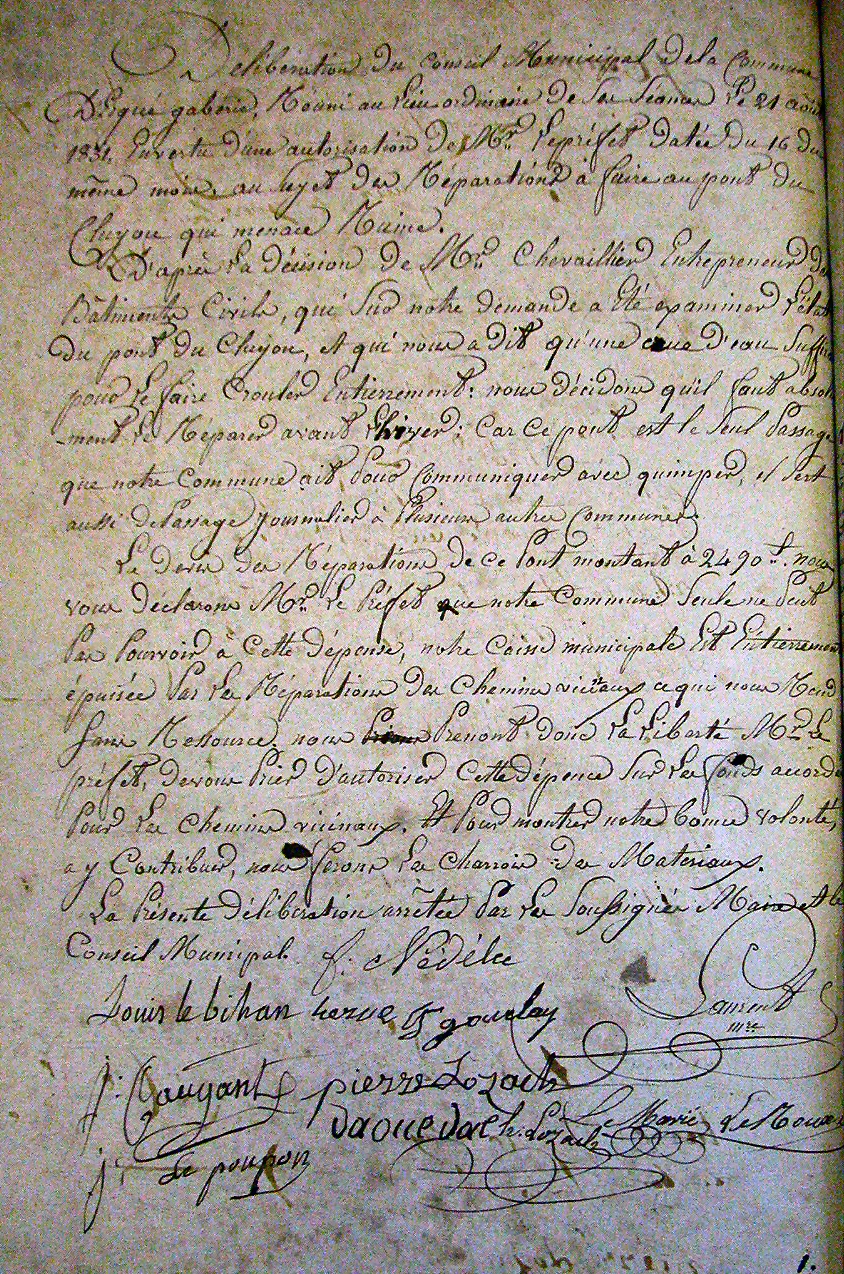 Délibération du Conseil Municipal de la Commune
D'Ergué gaberic, Réuni au lieu ordinaire de ses Séances le 21 août
1831, En vertu d'une autorisation de Mr. le préfet datée du 16 du
même mois, au Sujet des Réparations à faire au pont du
Cluyou qui menace Ruine.
D'après la décision de Mr. Chevaillier Entrepreneur des
Bâtiments Civils, qui Sur notre demande a Eté examiner l'état
du pont du Cluyou, et qui nous a dit qu'une crue d'eau Suffit
pour le faire Crouler Entierrement: nous décidons qu'il faut absolu
-ment le Réparer avant l'hiver; Car ce pont est le Seul Passage
que notre Commune ait Pour Communiquer avec quimper, il Sert
aussi de Passage Journalier à Plusieurs autres Communes.
Le devis des Réparations de ce Pont montant à 2490 f. nous
vous déclarons Mr. Le Préfet que notre Commune Seule ne Peut
Pas Pourvoir à Cette dépense, notre Caisse municipale Est Entierrement
épuisée Par les Réparations des Chemins vicinaux ce qui nous Rend
Sans Ressource, nous Prenont donc la Liberté Mr. Le
préfet, de vous Prier D'autoriser Cette dépence Sur les fonds accordés
Pour les Chemins vicinaux. Et Pour montrer notre bonne volonté,
a y Contribuer, nous ferons les Charrois des Materiaux.
La Présente délibération arrêtée Par les Soussignés Maire et le
Conseil Municipal. f. Nédélec
Laurent
mre
Louis le bihan herve gouelay
j: Caugant pierre Lozach
daouedal h. Lozach Le Marié Le Rouas
j: Le poupon
1.